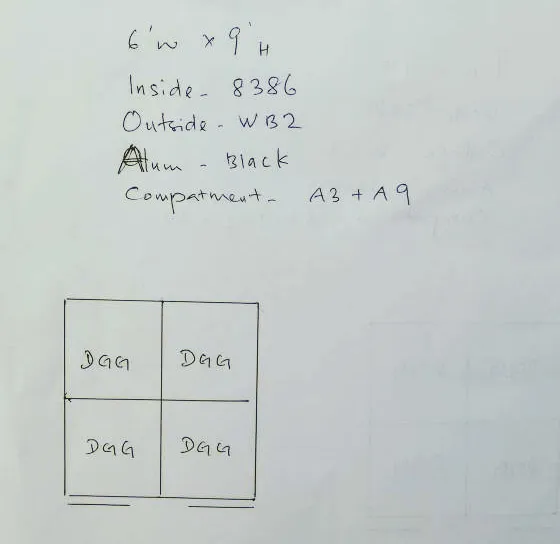 6'W x 9'H
Inside - 8386
Outside - WB2
Alum - Black
Compatment - A3 + A9
DGG DGG
DGG DGG